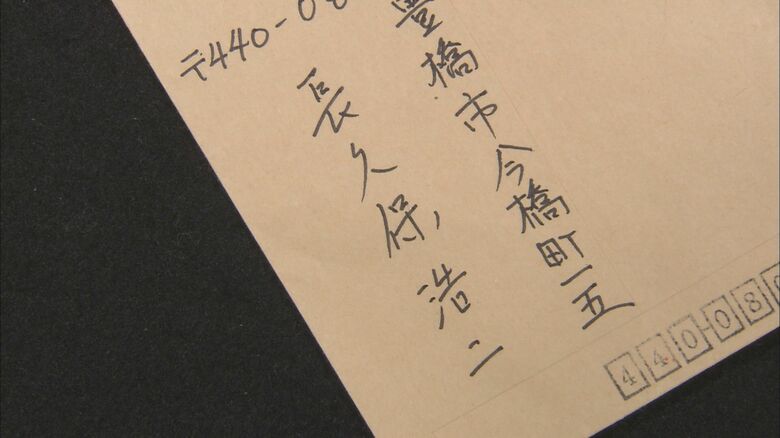 豊橋市今橋町一五
〒440-08
長久保浩二
440-08